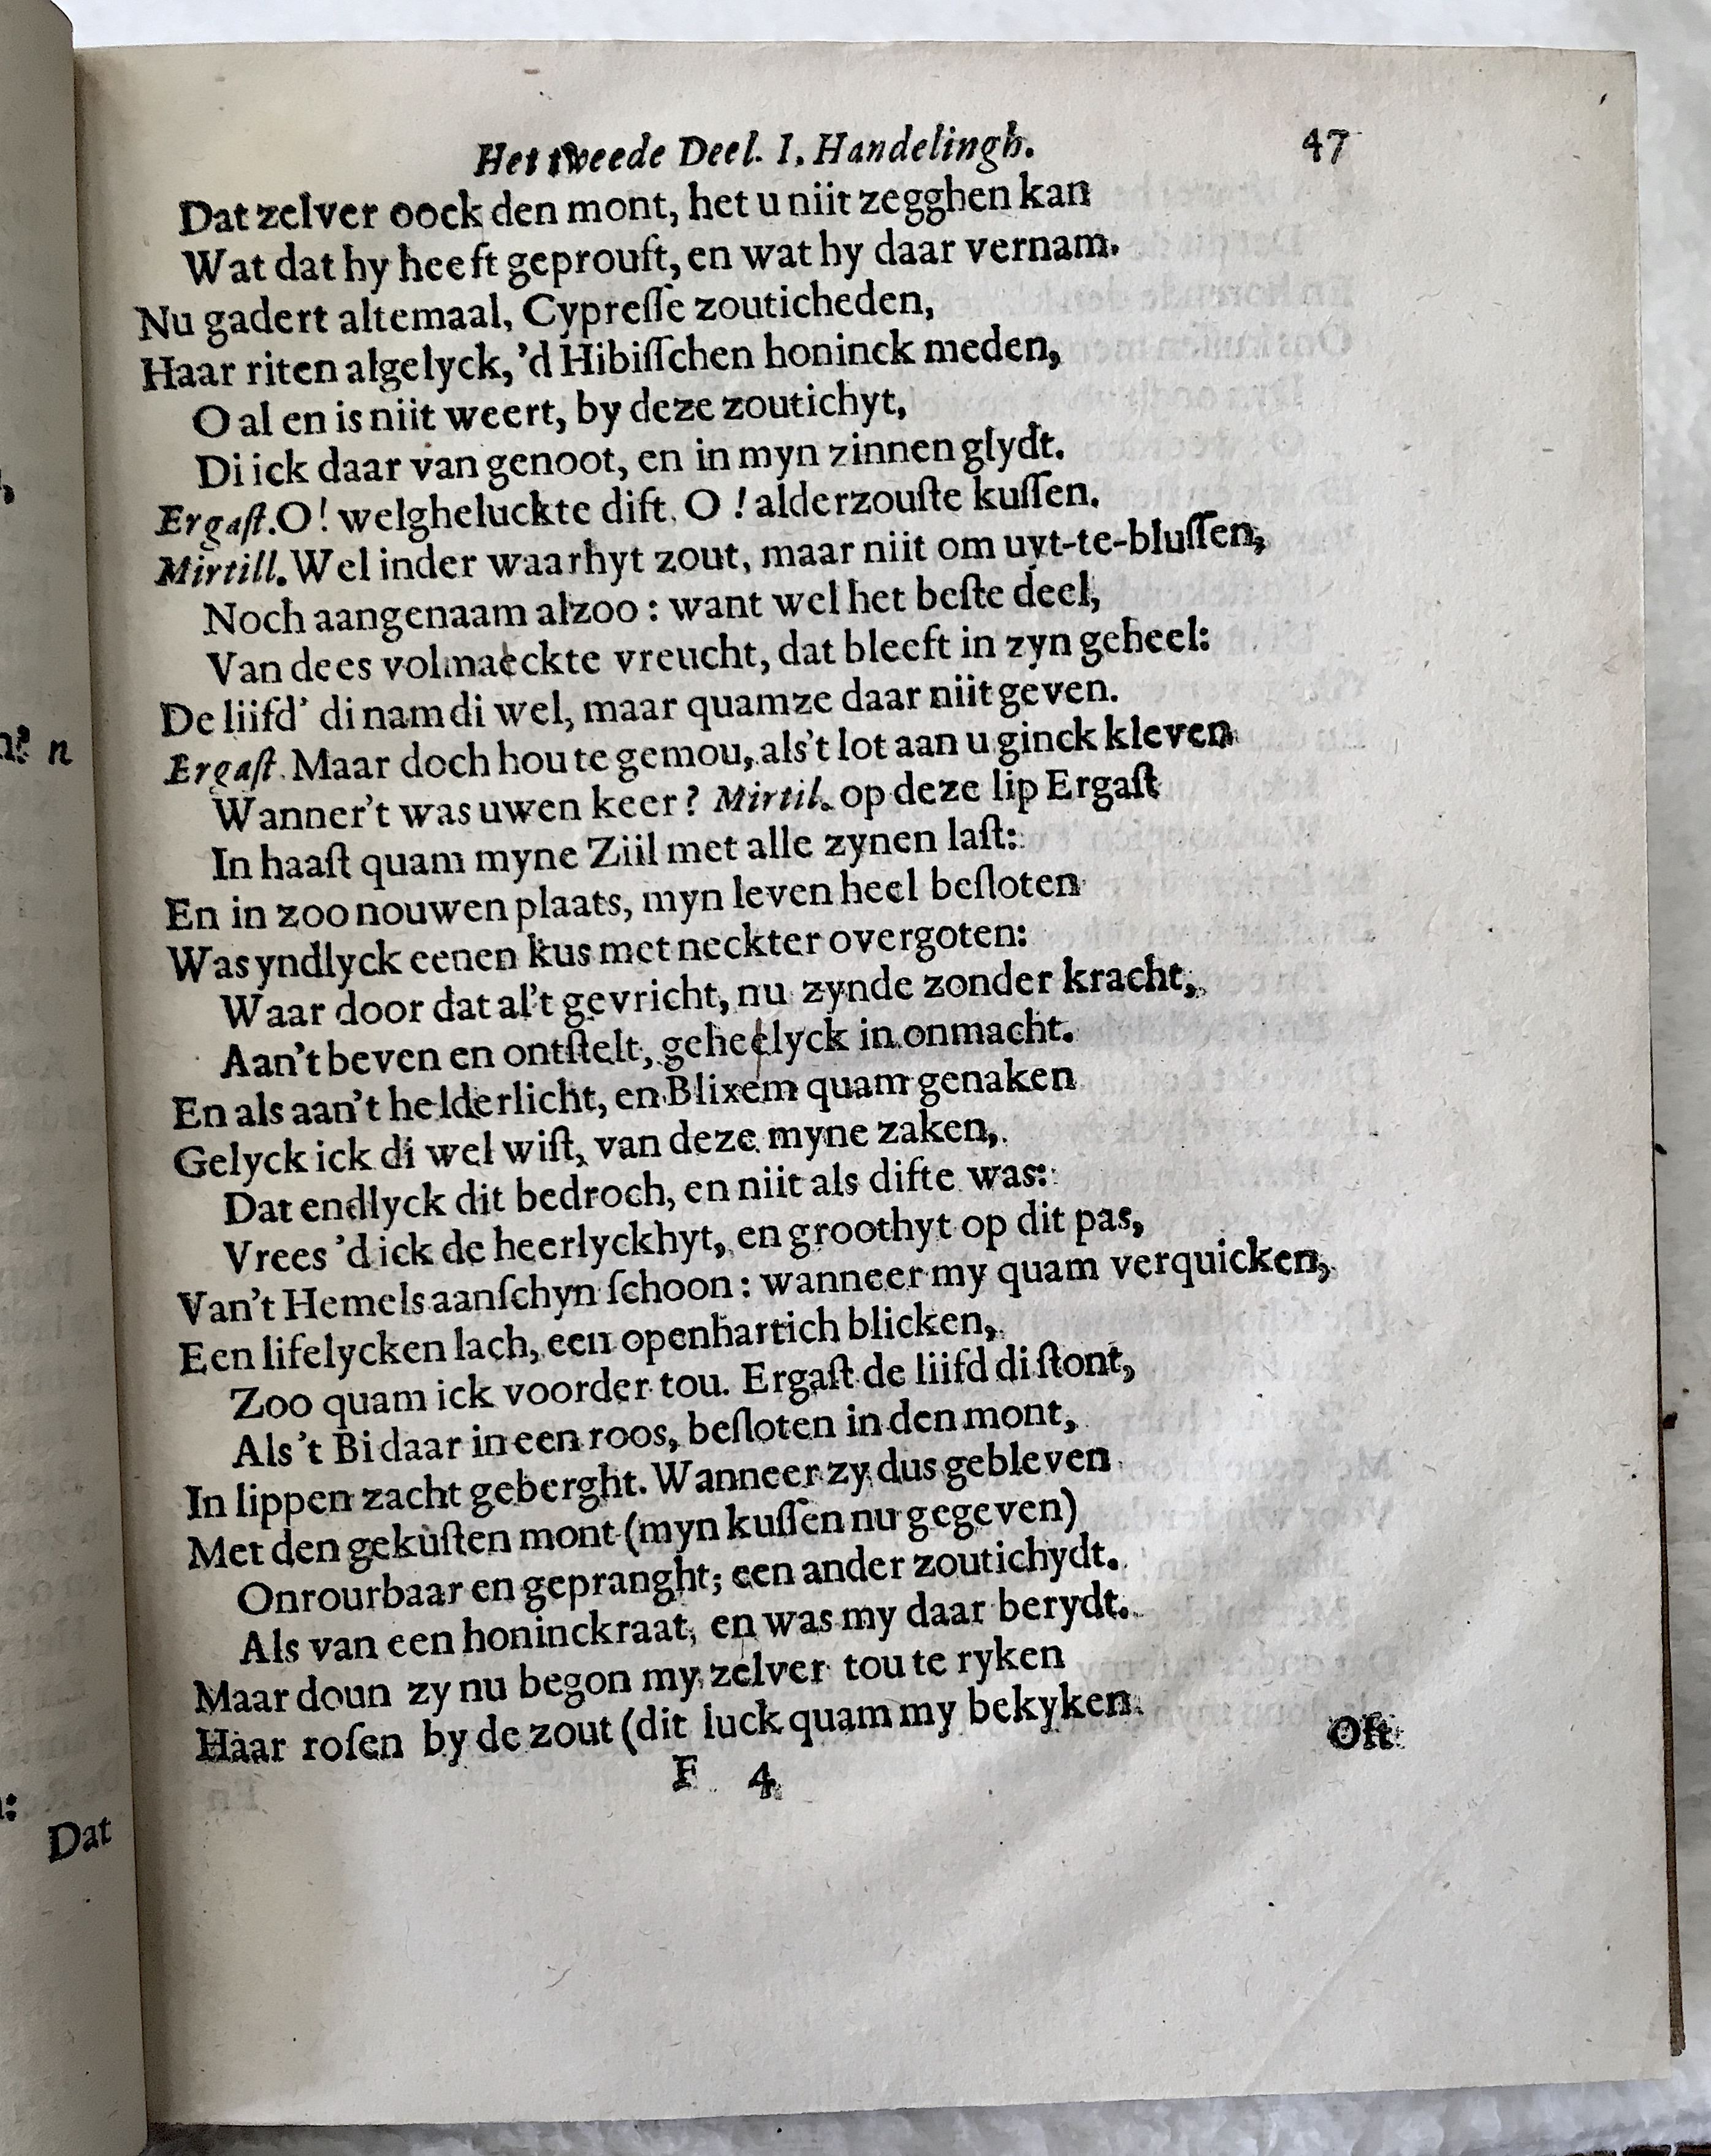 Het tweede Deel. I. Handelingh. 47
Dat zelver oock den mont, het u niit zegghen kan
Wat dat hy heeft geprouft, en wat hy daar vernam.
Nu gadert altemaal, Cypreſſe zouticheden,
Haar riten algelyck, 'd Hibiſſchen honinck meden,
O al en is niit weert, by deze zoutichyt,
Di ick daar van genoot, en in myn zinnen glydt.
Ergaſt. O! welgheluckte dift. O! alderzouſte kuſſen.
Mirtill. Wel inder waarhyt zout, maar niit om uyt-te-bluſſen,
Noch aangenaam alzoo: want wel het beſte deel,
Van dees volmaeckte vreucht, dat bleeft in zyn geheel:
De liifd' di nam di wel, maar quamze daar niit geven.
Ergaſt. Maar doch hou te gemou, als't lot aan u ginck kleven
Wanner't was uwen keer? Mirtil. op deze lip Ergaſt
In haaſt quam myne Ziil met alle zynen laſt:
En in zoo nouwen plaats, myn leven heel beſloten
Was yndlyck eenen kus met neckter overgoten:
Waar door dat al't gevricht, nu zynde zonder kracht,
Aan't beven en ontſtelt, geheelyck in onmacht.
En als aan't helderlicht, en Blixem quam genaken
Gelyck ick di wel wiſt, van deze myne zaken,
Dat endlyck dit bedroch, en niit als difte was:
Vrees 'd ick de heerlyckhyt, en groothyt op dit pas,
Van't Hemels aanſchyn ſchoon: wanneer my quam verquicken,
Een lifelycken lach, een openhartich blicken,
Zoo quam ick voorder tou. Ergaſt de liifd di ſtont,
Als 't Bi daar in een roos, beſloten in den mont,
In lippen zacht geberght. Wanneer zy dus gebleven
Met den gekuſten mont (myn kuſſen nu gegeven)
Onrourbaar en gepranght; een ander zoutichydt.
Als van een honinckraat, en was my daar berydt.
Maar doun zy nu begon my zelver tou te ryken
Haar roſen by de zout (dit luck quam my bekyken
F 4 Oft
n
Dat